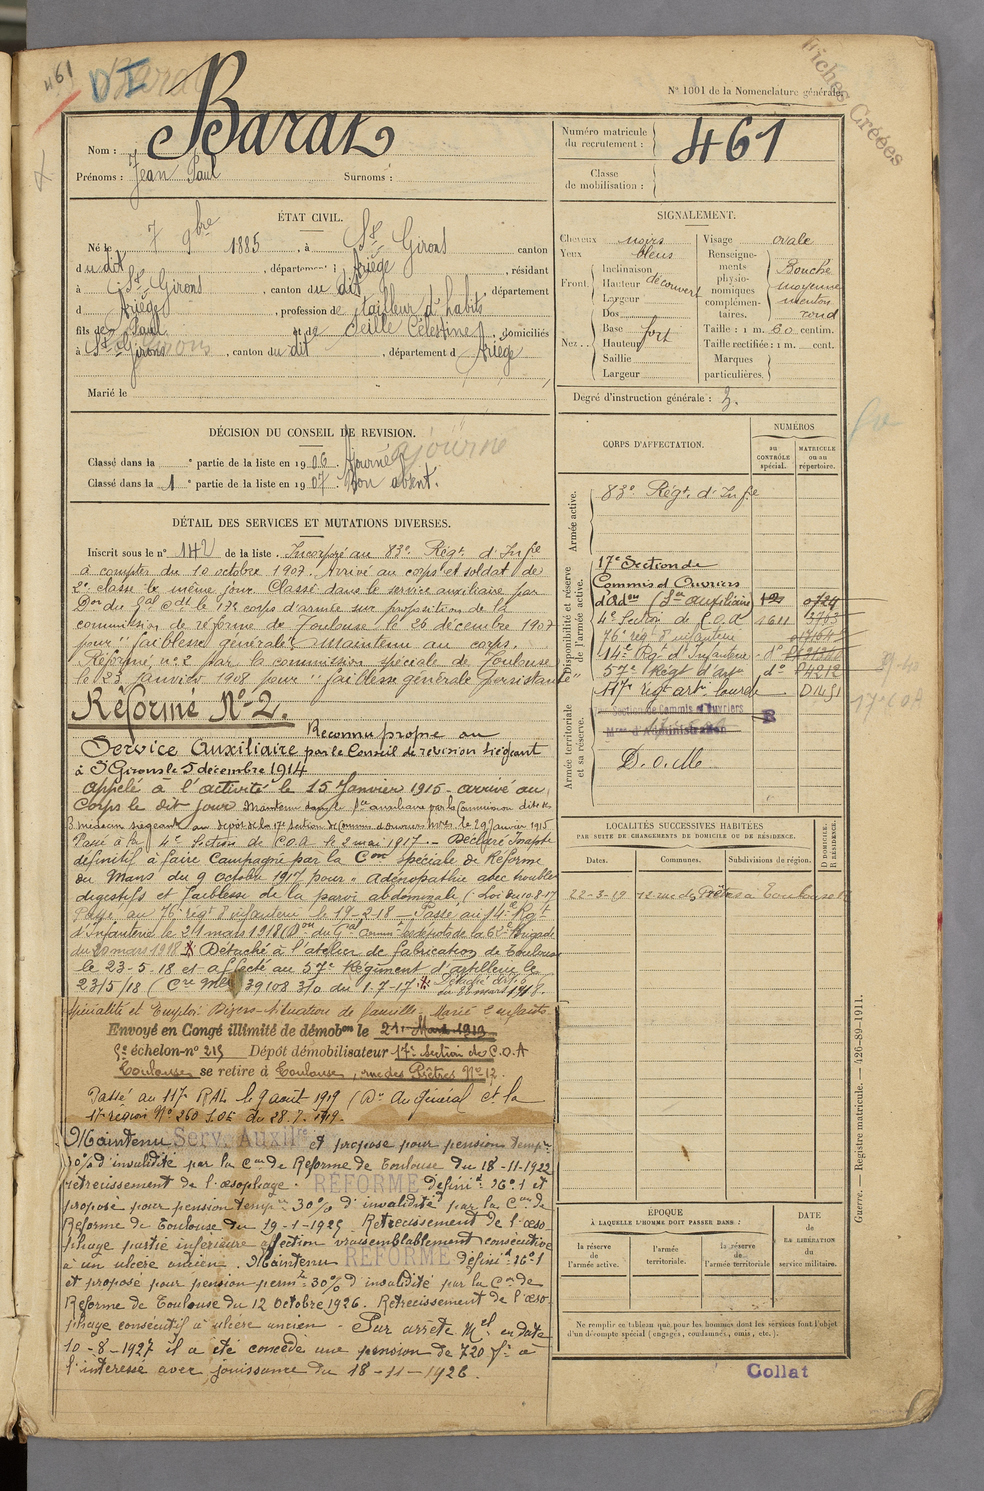 461
D I
Fiches Créées
N° 1001 de la Nomenclature générale.
Nom : Barat
Prénoms : Jean Paul Surnoms :
Numéro matricule du recrutement : 461
Classe de mobilisation :
ÉTAT CIVIL.
Né le 7 9bre 1885, à St Girons canton
du dit, département d Ariège, résidant
à St Girons, canton du dit, département
d Ariège, profession de tailleur d'habits
fils de Paul et de Seille Célestine, domiciliés
à St Girons, canton du dit, département d Ariège
Marié le
SIGNALEMENT.
Cheveux noirs
Yeux bleus
Front. Inclinaison
Hauteur découvert
Largeur
Nez... Dos
Base fort
Hauteur
Saillie
Largeur
Visage ovale
Renseignements physionomiques complémentaires. Bouche moyenne menton rond
Taille : 1 m. 60 centim.
Taille rectifiée : 1 m. cent.
Marques particulières.
Degré d'instruction générale : 3.
DÉCISION DU CONSEIL DE REVISION.
Classé dans la ° partie de la liste en 1906. Ajourné ajourné
Classé dans la 1 ° partie de la liste en 1907 Bon absent.
DÉTAIL DES SERVICES ET MUTATIONS DIVERSES.
Inscrit sous le n° 142 de la liste. Incorporé au 83e Régt d'Infie
à compter du 10 octobre 1907. Arrivé au corps et soldat de
2e classe le même jour. Classé dans le service auxiliaire par
Don du Gal Cdt le 17e corps d'armée sur proposition de la
commission de réforme de Toulouse le 26 décembre 1907
pour "faiblesse générale" Maintenu au corps.
Réformé n° 2 par la commission spéciale de Toulouse
le 23 janvier 1908 pour "faiblesse générale persistante"
Réformé N° 2.
Reconnu propre au
Service Auxiliaire par le Conseil de revision siégeant
à St Girons le 5 décembre 1914
Appelé à l'activité le 15 Janvier 1915 - arrivé au
Corps le dit jour Maintenu dans le Sce auxiliaire par la Commission dite des
3 médecins siégeant au dépôt de la 17e section de Commis d'ouvriers mres le 29 Janvier 1915
Passé à la 4e Section de C.O.A. le 2 mai 1917. - Déclaré Inapte
définitif à faire Campagne par la Con spéciale de Réforme
du Mans du 9 Octobre 1917 pour "Adénopathie avec troubles
digestifs et faiblesse de la paroi abdominale (Loi du 10-8-17
Passé au 76e régt d'infanterie le 19-2-18 - Passé au 14e Rgt
d'Infanterie le 21 mars 1918
du 20 mars 1918 X Détaché à l'atelier de fabrication de Toulouse
le 23-5-18 et affecté au 57e Régiment d'artillerie le
23/5/18 (Cre Mlle 39108 3/0 du 1-7-17
spécialité et Emploi Divers - situation de famille - Marié 2 enfants
Envoyé en Congé illimité de démobon le 21 Mars 1919
5e échelon-n° 215 Dépôt démobilisateur 17e Section de C.O.A
Toulouse se retire à Toulouse, rue des Prêtres N° 12.
Passé au 117e RAL le 9 août 1919 (Don du général ct la
17e région N° 260 du 28.7.1919.
Maintenu Serv. Auxil.re et proposé pour pension tempre
10% d'invalidité par la Con de Réforme de Toulouse du 18-11-1922
rétrécissement de l'œsophage. RÉFORMÉ définif N° 1 et
proposé pour pension tempre 30% d'invalidité par la Con de
Réforme de Toulouse du 19-1-1925 Rétrécissement de l'œso-
phage partie inférieure affection vraisemblablement consécutive
à un ulcère ancien. Maintenu RÉFORMÉ définif N° 1
et proposé pour pension permte 30% d'invalidité par la Con de
Réforme de Toulouse du 12 octobre 1926. Rétrécissement de l'œso-
phage consécutif à ulcère ancien - Par arrêté Mel en date
10-8-1927 il a été concédé une pension de 720 f. à
l'intéressé avec jouissance du 18-11-1926.
CORPS D'AFFECTATION.
NUMÉROS
au CONTRÔLE spécial.
MATRICULE ou au répertoire.
Armée active.
83e Régt d'Infie
Disponibilité et réserve de l'armée active.
17e Section de
Commis et Ouvriers
d'Adon (Sce auxiliaire)
4e Section de C.O.A 1611 3763
76e rég d'infanterie
14e Rgt d'Infanterie
57e Régt d'Artie do 4212
117e régt artie lourde D1451
Armée territoriale et sa réserve.
Section de Commis et Ouvriers
Mres d'Administration
B
D.o.M.
17e C O A
LOCALITÉS SUCCESSIVES HABITÉES
PAR SUITE DE CHANGEMENTS DE DOMICILE OU DE RÉSIDENCE.
Dates.
Communes.
Subdivisions de région.
D DOMICILE. R RÉSIDENCE.
22-3-19 12 rue des Prêtres à Toulouse R
ÉPOQUE
À LAQUELLE L'HOMME DOIT PASSER DANS :
DATE de LA LIBÉRATION du service militaire.
la réserve de l'armée active.
l'armée territoriale.
la réserve de l'armée territoriale
Ne remplir ce tableau que pour les hommes dont les services font l'objet
d'un décompte spécial (engagés, condamnés, omis, etc.).
Collat
Guerre. — Registre matricule. — 426-89-1911.